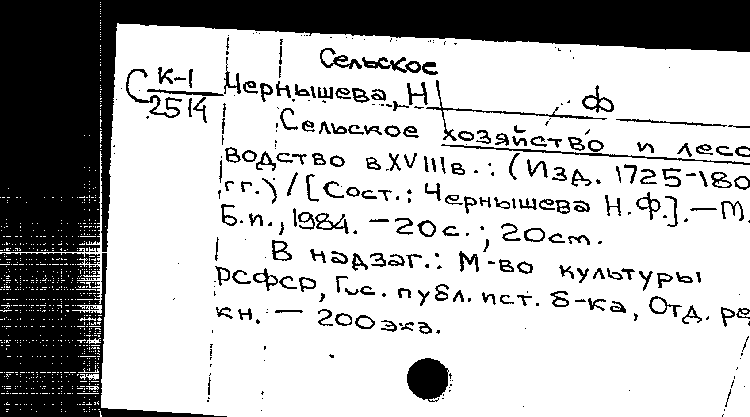 Сельское
С К-1
2514
Чернышева, Н Ф
Сельское хозяйство и лесо
водство в XVIII в. : (Изд. 1725-180
гг.) / [Сост.: Чернышева Н.Ф.]. — М.
Б.и., 1984. — 20 с. ; 20 см.
В надзаг.: М-во культуры
РСФСР, Гос. публ. ист. б-ка, Отд. ре
кн. — 200 экз.